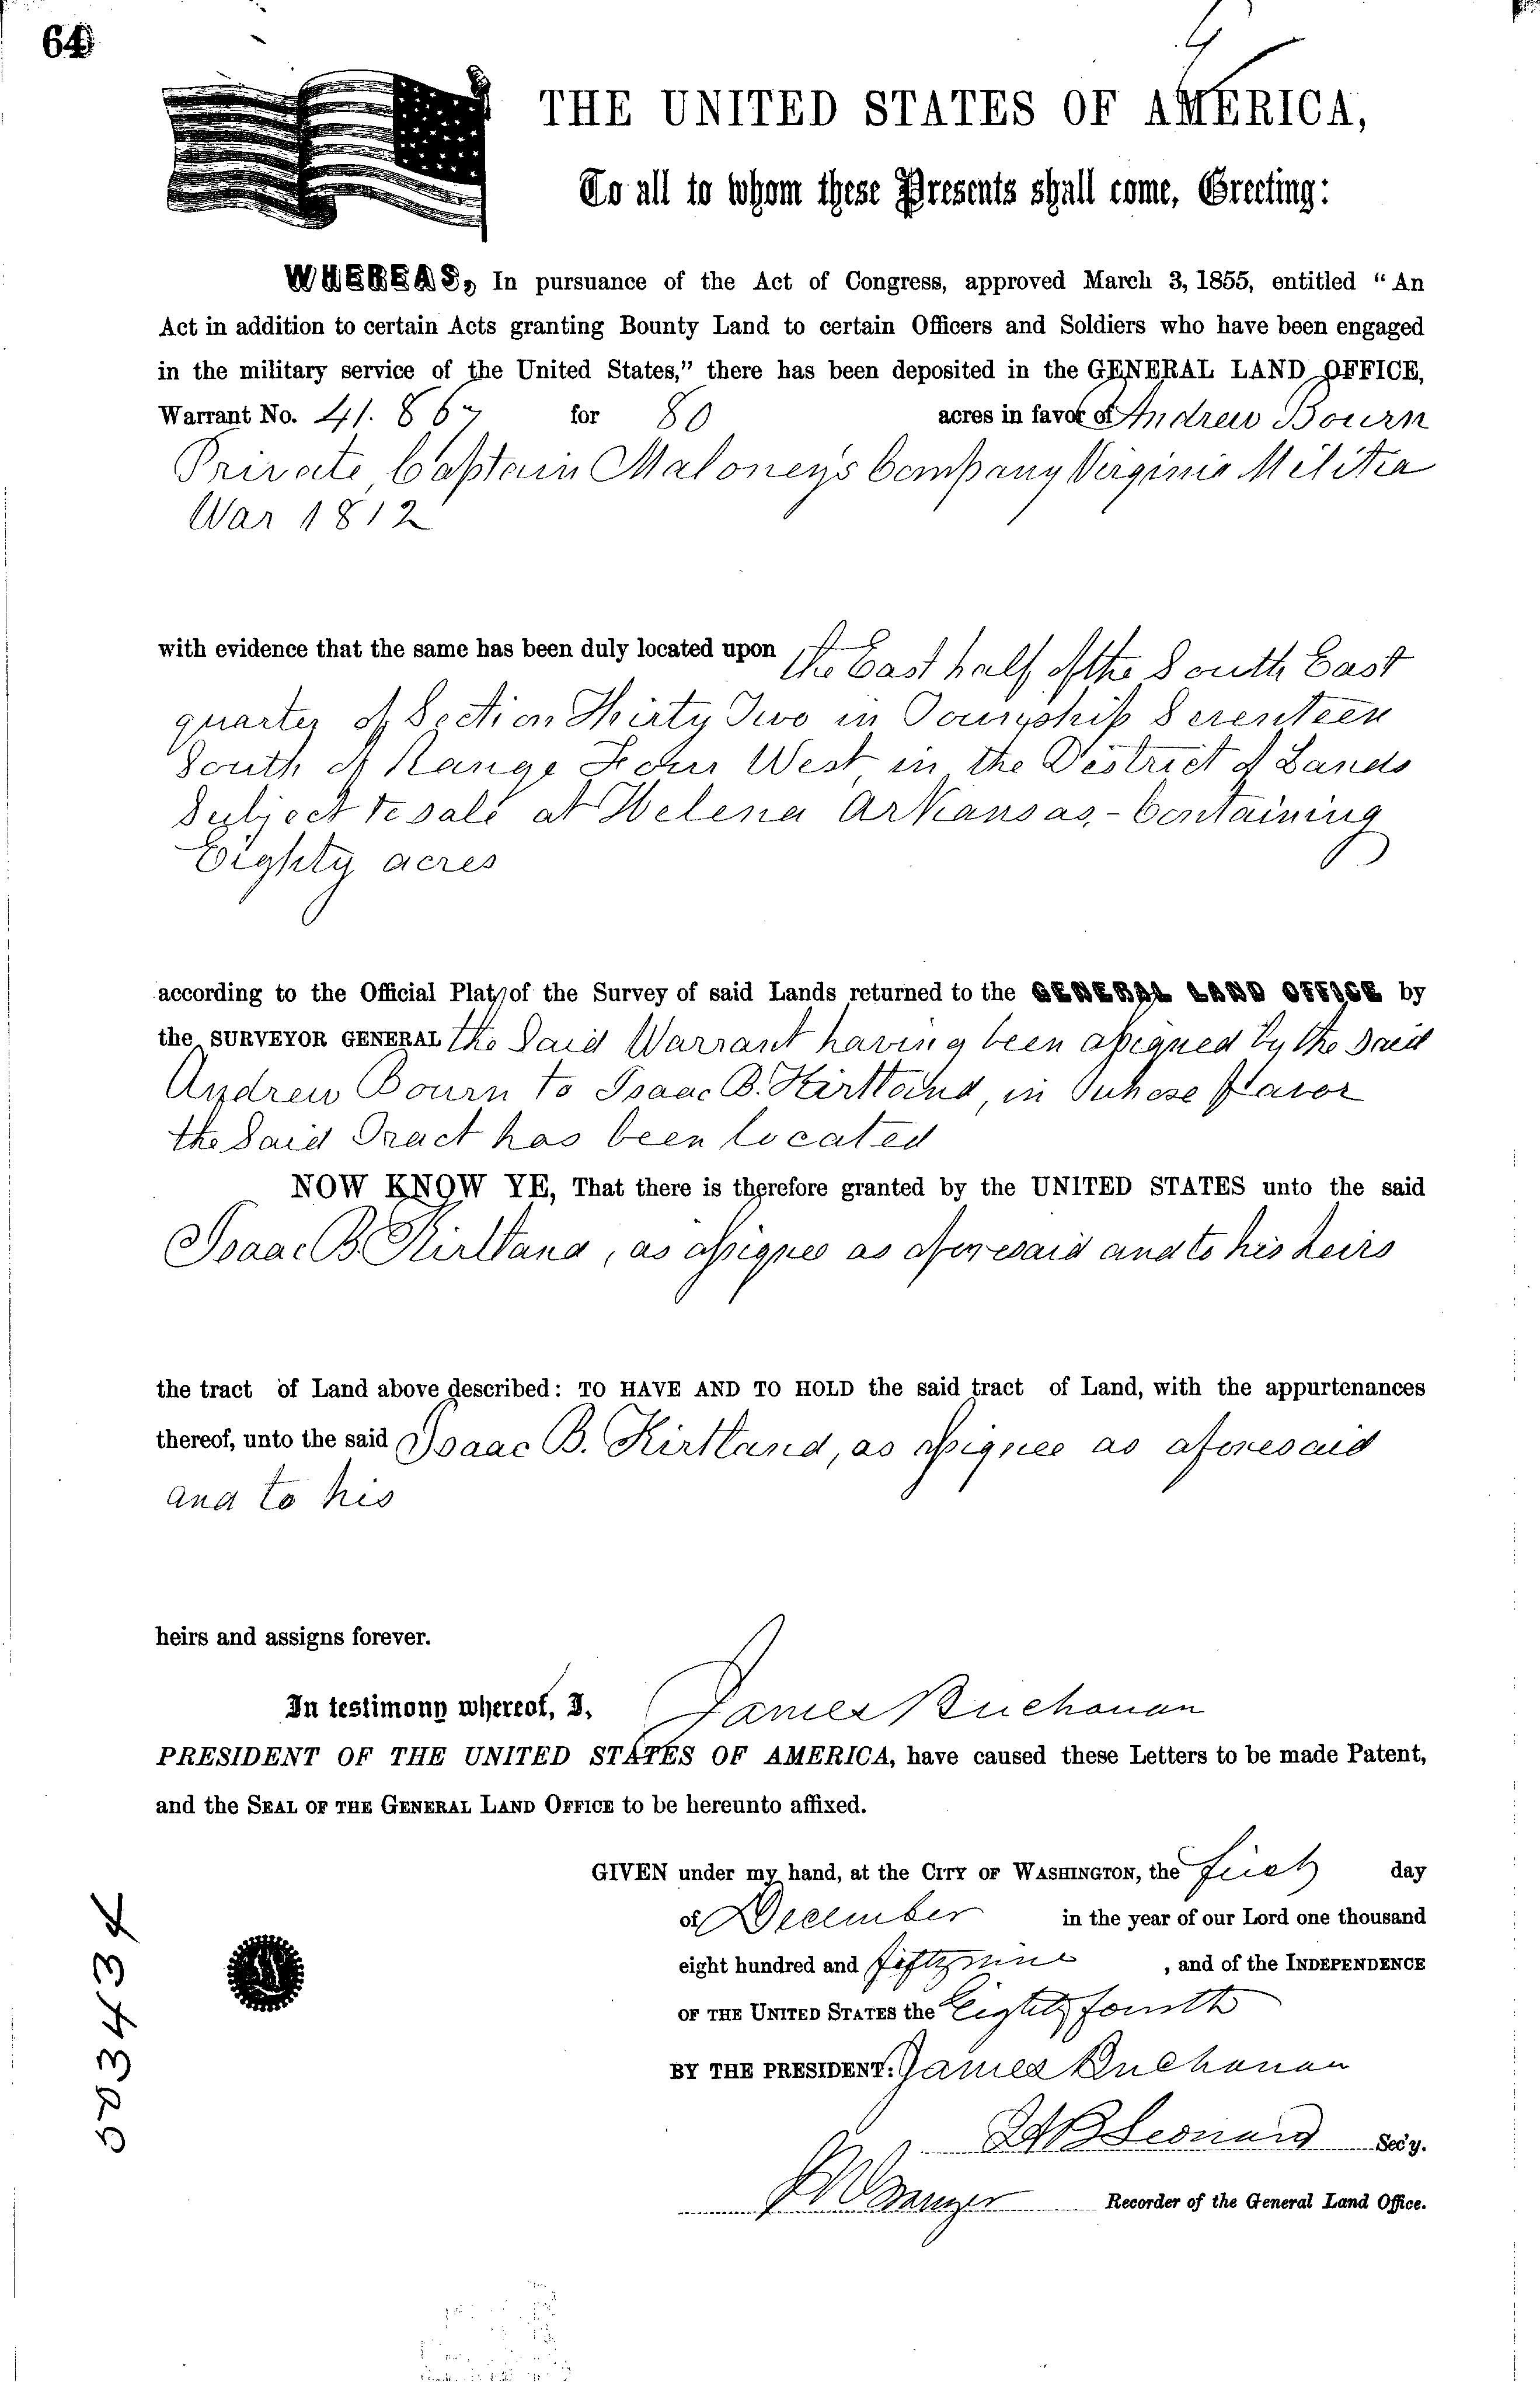 64
THE UNITED STATES OF AMERICA,
To all to whom these Presents shall come, Greeting:
WHEREAS, In pursuance of the Act of Congress, approved March 3, 1855, entitled "An
Act in addition to certain Acts granting Bounty Land to certain Officers and Soldiers who have been engaged
in the military service of the United States," there has been deposited in the GENERAL LAND OFFICE,
Warrant No. 41.867 for 80 acres in favor of Andrew Bourn
Private Captain Maloney's Company Virginia Militia
War 1812
with evidence that the same has been duly located upon the East half of the South East
quarter of Section Thirty Two in Township Seventeen
South of Range Four West in the District of Lands
Subject to sale at Helena Arkansas,- Containing
Eighty acres
according to the Official Plat of the Survey of said Lands returned to the GENERAL LAND OFFICE by
the SURVEYOR GENERAL the Said Warrant having been assigned by the said
Andrew Bourn to Isaac B. Kirtland, in whose favor
the Said Tract has been located
NOW KNOW YE, That there is therefore granted by the UNITED STATES unto the said
Isaac B. Kirtland, as assignee as aforesaid and to his heirs
the tract of Land above described: TO HAVE AND TO HOLD the said tract of Land, with the appurtenances
thereof, unto the said Isaac B. Kirtland, as assignee as aforesaid
and to his
heirs and assigns forever.
In testimony whereof, I, James Buchanan
PRESIDENT OF THE UNITED STATES OF AMERICA, have caused these Letters to be made Patent,
and the SEAL OF THE GENERAL LAND OFFICE to be hereunto affixed.
GIVEN under my hand, at the CITY OF WASHINGTON, the first day
of December in the year of our Lord one thousand
eight hundred and fifty nine, and of the INDEPENDENCE
OF THE UNITED STATES the Eighty fourth
BY THE PRESIDENT: James Buchanan
Leonard Sec'y.
Granger Recorder of the General Land Office.